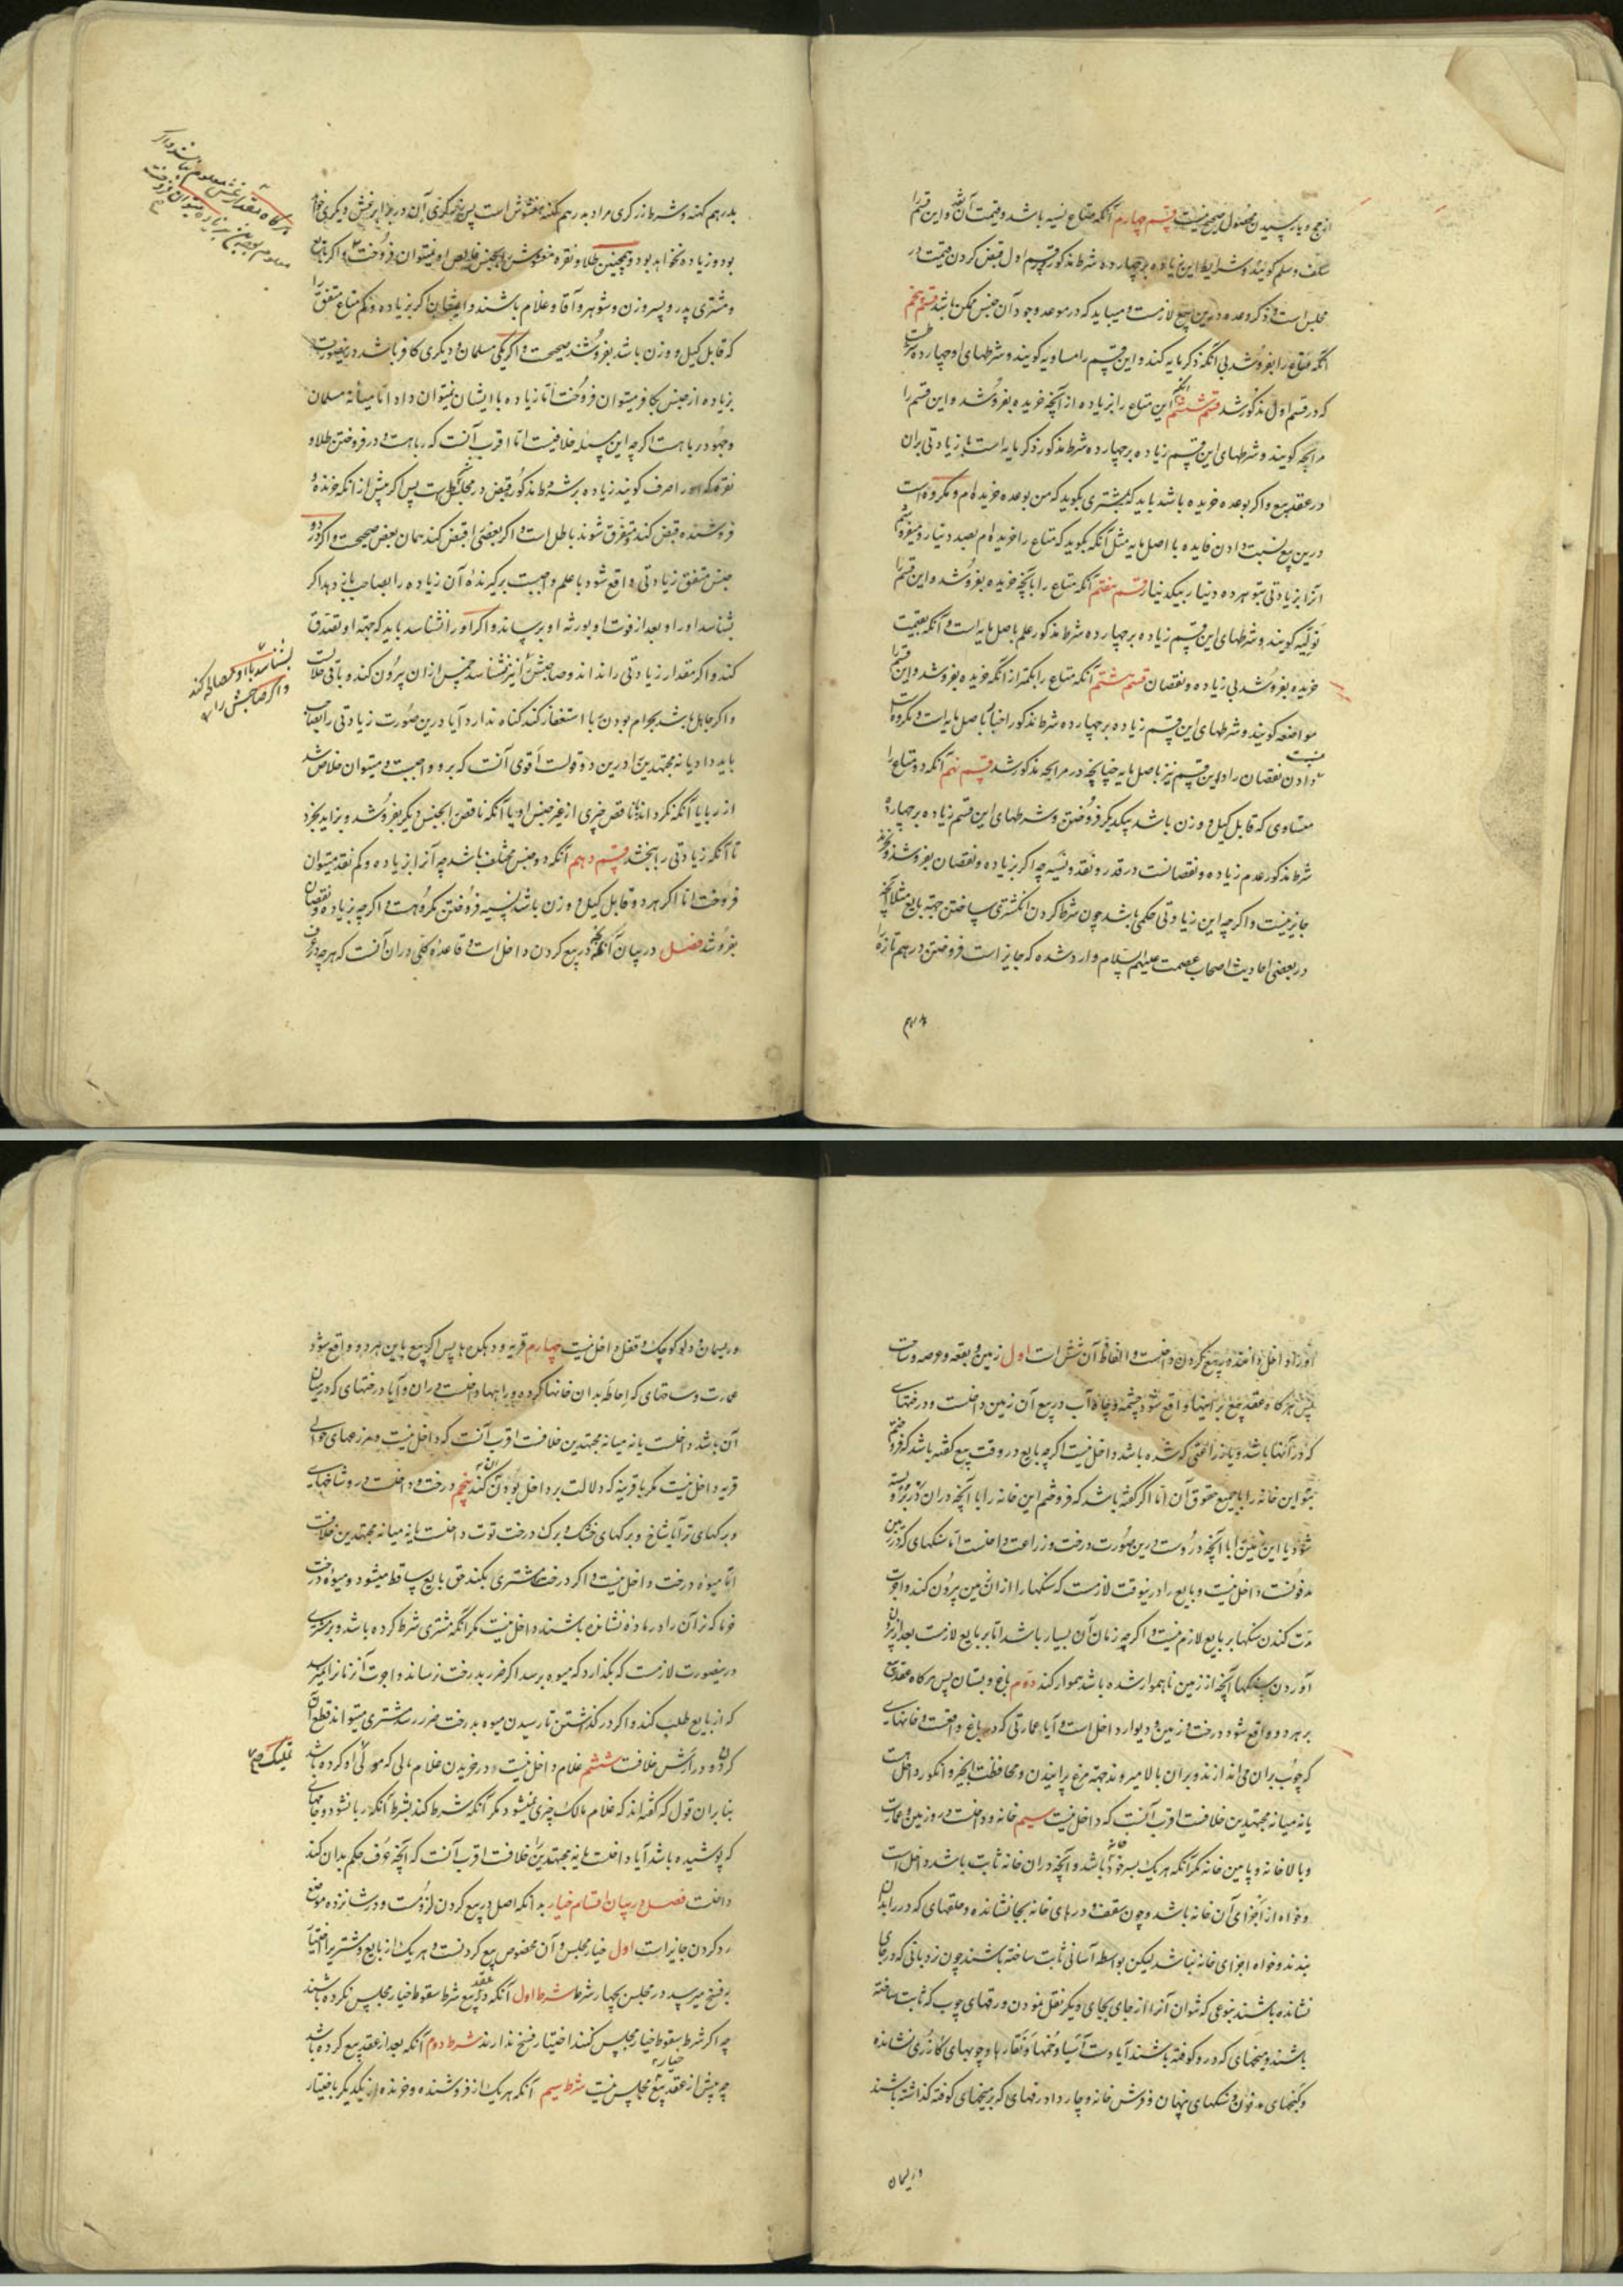 از حج و باز پسیدن محصول صحیح نیست قسم چهارم آنکه متاع نسیه باشد و قیمت آن نقد و این قسم را
سلف و سلم گویند و شرایط این زیاده بر چهارده شرط مذکور قسم اول قبض کردن قیمت در
مجلس است و ذکر وعده و درین بیع لازمست و میباید که در موعد وجود آن جنس ممکن باشد قسم پنجم
آنکه متاع را بفروشد بی آنکه ذکر مایه کند و این قسم را مساویه گویند و شرطهای او چهارده شرطست
که در قسم اول مذکور شد قسم ششم آنکه این متاع را بزیاده از آنچه خریده بفروشد و این قسم را
مرابحه گویند و شرطهای این قسم زیاده بر چهارده شرط مذکور ذکر مایه است با زیادتی بران
در عقد بیع و اگر بوعده خریده باشد باید که بمشتری بگوید که من بوعده خریده ام و مکروه است
درین بیع نسبت دادن فایده با اصل مایه مثل آنکه بگوید که متاع را خریده ام بصد دینار و میفروشم
آنرا بزیادتی بتو هر ده دینار بیکدینار قسم هفتم آنکه متاع را بآنچه خریده بفروشد و این قسم را
تولیه گویند و شرطهای این قسم زیاده بر چهارده شرط مذکور علم باصل مایه است و آنکه بقیمت
خریده بفروشد بی زیاده و نقصان قسم هشتم آنکه متاع را بکمتر از آنکه خریده بفروشد و این قسم را
مواضعه گویند و شرطهای این قسم زیاده بر چهارده شرط مذکور اخبار باصل مایه است و مکروه است
نسبت دادن نقصان را در این قسم نیز باصل مایه چنانچه در مرابحه مذکور شد قسم نهم آنکه دو متاع را
متساوی که قابل کیل و وزن باشد بیکدیگر فروختن و شرطهای این قسم زیاده بر چهارده
شرط مذکور عدم زیاده و نقصانست در قدر و نقد و نسیه چه اگر بزیاده و نقصان بفروشند و بخرند
جایز نیست و اگر چه این زیادتی حکمی باشد چون شرط کردن انگشتری ساختن جهة بایع مثلا آنچه
در بعضی احادیث اصحاب عصمت علیهم السلام وارد شده که جایز است فروختن درهم تازه را
بدرهم
بدرهم کهنه و شرط زرگری مراد بدرهم کهنه مغشوش است پس زرگری آن در برابر غش دیگری خواهد
بود و زیاده نخواهد بود و همچنین طلا و نقره مغشوش را بجنس خالص او نمیتوان فروخت و اگر بایع
و مشتری پدر و پسر و زن و شوهر و آقا و غلام باشند و ایشان اگر بزیاده و کم متاع متفق را
که قابل کیل و وزن باشد بفروشند صحیحست و اگر یکی مسلمان و دیگری کافر باشد درینصورت
بزیاده از جنس بکافر میتوان فروخت اما زیاده با ایشان نمیتوان داد اما میانه مسلمان
و جهود ربا هست اگر چه این مسئله خلافیست اما اقرب آنست که ربا هست و در فروختن طلا و
نقره که او را صرف گویند زیاده بر شروط مذکور قبض در مجلس است پس اگر پیش از آنکه خرنده و
فروشنده قبض کنند متفرق شوند باطل است و اگر بعضی را قبض کنند همان بعض صحیحست و اگر در دو
جنس متفق زیادتی واقع شود با علم واجبست بر گیرنده آن زیاده را بصاحب باز دهد اگر
بشناسد او را و بعد از فوت او بورثه او برساند و اگر او را نشناسد باید که جهة او تصدق
کند و اگر مقدار زیادتی را نداند و صاحبش را نیز نشناسد خمس از آن بیرون کند و باقی حلالست
و اگر جاهل باشد بحرام بودن ربا استغفار کند گناه ندارد آیا درین صورت زیادتی را بصاحب
باید داد یا نه مجتهدین را درین دو قولست اقوی آنست که برو واجبست و میتوان خلاص شد
از ربا یا آنکه بگرداند ناقص چیزی از غیر جنس او یا آنکه ناقص را بجنس دیگر بفروشد و بزاید بخرد
تا آنکه زیادتی را ببخشد قسم دهم آنکه دو جنس مختلف باشد چه آنرا بزیاده و کم نقد میتوان
فروخت اما اگر هر دو قابل کیل و وزن باشد بنسیه فروختن مکروهست و اگر چه بزیاده و نقصان
بفروشد فصل در بیان آنچه در بیع کردن داخل است و قاعده کلی دران آنست که هر چه در عرف
هرگاه مقدار غش معلوم باشد و اگر
معلوم نبود بجنس بزیاده میتوان فروخت
بشناسد با او مصالحه کند
و اگر صاحبش را
او را داخل دانند در بیع کردن داخلست و الفاظ آن شش است اول زمین و بقعه و عرصه و ساحت
پس هر گاه عقد بیع بر اینها واقع شود چشمه و چاه آب در بیع آن زمین داخلست و درختهای
که در آنها باشد و یا زراعتی که شده باشد داخل نیست اگر چه بایع در وقت بیع گفته باشد که فروختم
بتو این خانه را با جمیع حقوق آن اما اگر گفته باشد که فروختم این خانه را با آنچه در ان در برو بسته
شود یا این زمین را با آنچه در وست درین صورت درخت و زراعت داخلست اما سنگهای که در زمین
مدفونست داخل نیست و بایع را درینوقت لازمست که سنگها را از ان زمین بیرون کند و اجرت
مدت کندن سنگها بر بایع لازم نیست و اگر چه زمان آن بسیار باشد اما بر بایع لازمست بعد از بیرون
آوردن سنگها آنچه از زمین ناهموار شده باشد هموار کند دوم باغ و بستان پس هر گاه عقد بیع
بر هر دو واقع شود درخت و زمین و دیوار داخل است و آیا عمارتی که در باغ واقعست و خانهای
که چوب بران می اندازند و بران بالا میروند جهة مرغ پرانیدن و محافظت انجیر و انگور داخل هست
یا نه میانه مجتهدین خلافست اقرب آنست که داخل نیست سیم خانه و داخلست درو زمین و عمارت
و بالا خانه و پایین خانه مگر آنکه هر یک بسر خود خانه باشد و آنچه دران خانه ثابت باشد داخل است
و خواه از اجزای آن خانه باشد و چون سقف و درهای خانه بجا نشانده و حلقهای که در را بدان
بندند و خواه اجزای خانه نباشد لیکن بواسطه آسانی ثابت ساخته باشند چون نردبانی که در جای
نشانده باشند بنوعی که نتوان آنرا از جای بجای دیگر نقل نمودن و رفهای چوب که ثابت ساخته
باشند و میخهای که در و کوفته باشند آیا دست آسیا و خمها و تغارها و چوبهای گازری نشانده
و گنجهای مدفون و سنگهای پنهان و فرش خانه و چار دادر رفهای که بر میخهای کوفته گذاشته باشند
و ریسمان
و ریسمان و دلو کوچک و قفل داخل نیست چهارم قریه و دهکدها پس اگر بیع باین هر دو واقع شود
عمارت و ساحتهای که احاطه بدان خانها کرده و راهها داخلست دران و آیا درختهای که در میان
آن باشد داخلست یا نه میانه مجتهدین خلافست اقرب آنست که داخل نیست و مزرعهای حوالی
قریه داخل نیست مگر با قرینه که دلالت بر داخل بودن آن کند پنجم درخت و داخلست درو شاخهای
و برگهای تر آیا شاخ و برگهای خشک و برگ درخت توت داخلست یا نه میانه مجتهدین خلافست
اما میوه درخت داخل نیست و اگر درخت را مشتری بکند حق بایع ساقط میشود و میوه درخت
خرما که نر آن را در ماده نشانده باشند داخل نیست مگر آنکه مشتری شرط کرده باشد و بر مشتری
درینصورت لازمست که بگذارد که میوه برسد اگر ضرر بدرخت نرساند و اجرت آنزمانرا نمیرسد
که از بایع طلب کند و اگر در گذاشتن تا رسیدن میوه بدرخت ضرر رسد مشتری میتواند قطع آن
کردن و در ارش خلافست ششم غلام داخل نیست در خریدن غلام مالی که مولی او کرده باشد
بنا بران قول که گفته اند که غلام مالک چیزی نمیشود مگر آنکه شرط کند بشرط آنکه ربا نشود و جامهای
که پوشیده باشد آیا داخلست یا نه مجتهدین را خلافست اقرب آنست که آنچه عرف حکم بدان کند
داخلست فصل در بیان اقسام خیار بدانکه اصل در بیع کردن لزومست و در شانزده موضع
رد کردن جایز است اول خیار مجلس و آن مخصوص بیع کردنست و هر یک از بایع و مشتریرا اختیار
فسخ میرسد در مجلس بچهار شرط شرط اول آنکه در عقد بیع شرط سقوط خیار مجلس نکرده باشند
چه اگر شرط سقوط خیار مجلس کنند اختیار فسخ ندارند شرط دوم آنکه بعد از عقد بیع کرده باشد
چه پیش از عقد بیع خیار مجلس نیست شرط سیم آنکه هر یک از فروشنده و خرنده از یکدیگر باختیار
تملیک